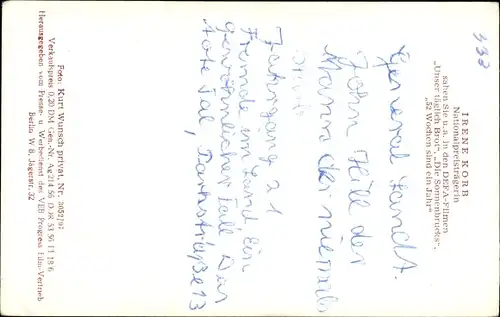 333
IRENE KORB
Nationalpreisträgerin
sahen Sie u. a. in den DEFA-Filmen
„Unser täglich Brot", „Die Sonnenbrucks",
„52 Wochen sind ein Jahr"
General Landt.
John Hill der
Mann der niemals
Jahrgang 21
Fremde im Land Ein
gewöhnlicher Fall Das
tote Tal, Parkstraße 13
Foto: Kurt Wunsch privat, Nr. 3052/97
Verkaufspreis 0,20 DM Gen.-Nr. Ag 214 55 DJ 8 53 56 11 18 6
Herausgegeben vom Presse- u. Werbedienst des VEB Progress Film-Vertrieb
Berlin W 8, Jägerstr. 32